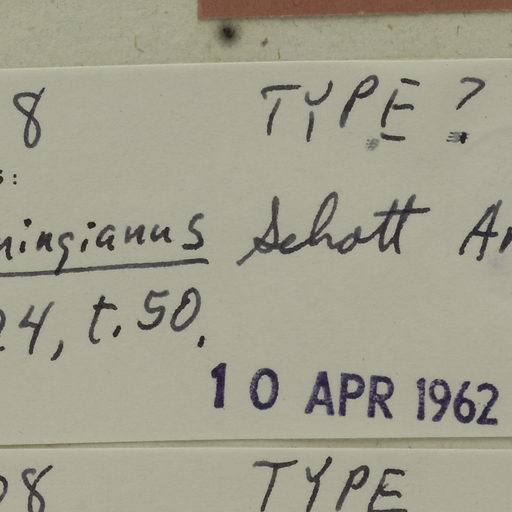 8 TYPE ?
s:
ningianus Schott Ar
24, t. 50.
10 APR 1962
08 TYPE